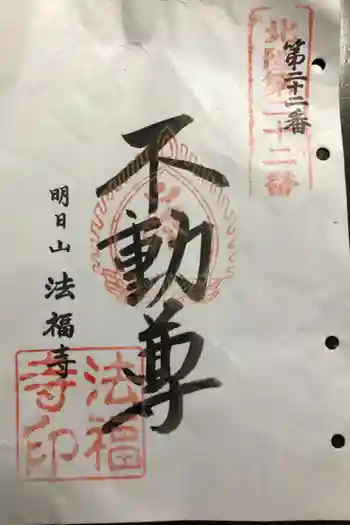 北陸第二十二番
第二十二番
不動尊
明日山 法福寺
法福
寺印